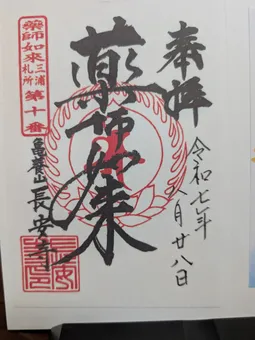 奉拝
令和七年
八月廿八日
薬師如来
薬師如來
三浦
札所
第十番
長安寺